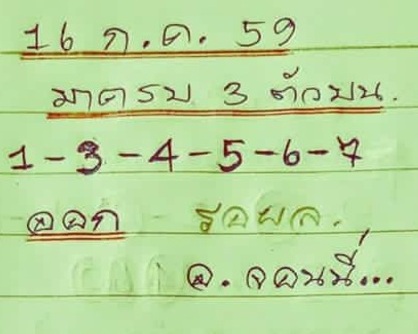 16 ก.ค. 59
มาตรบ 3 ตัวบน.
1-3-4-5-6-7
ออก รอผล.
อ. จอนนี่...